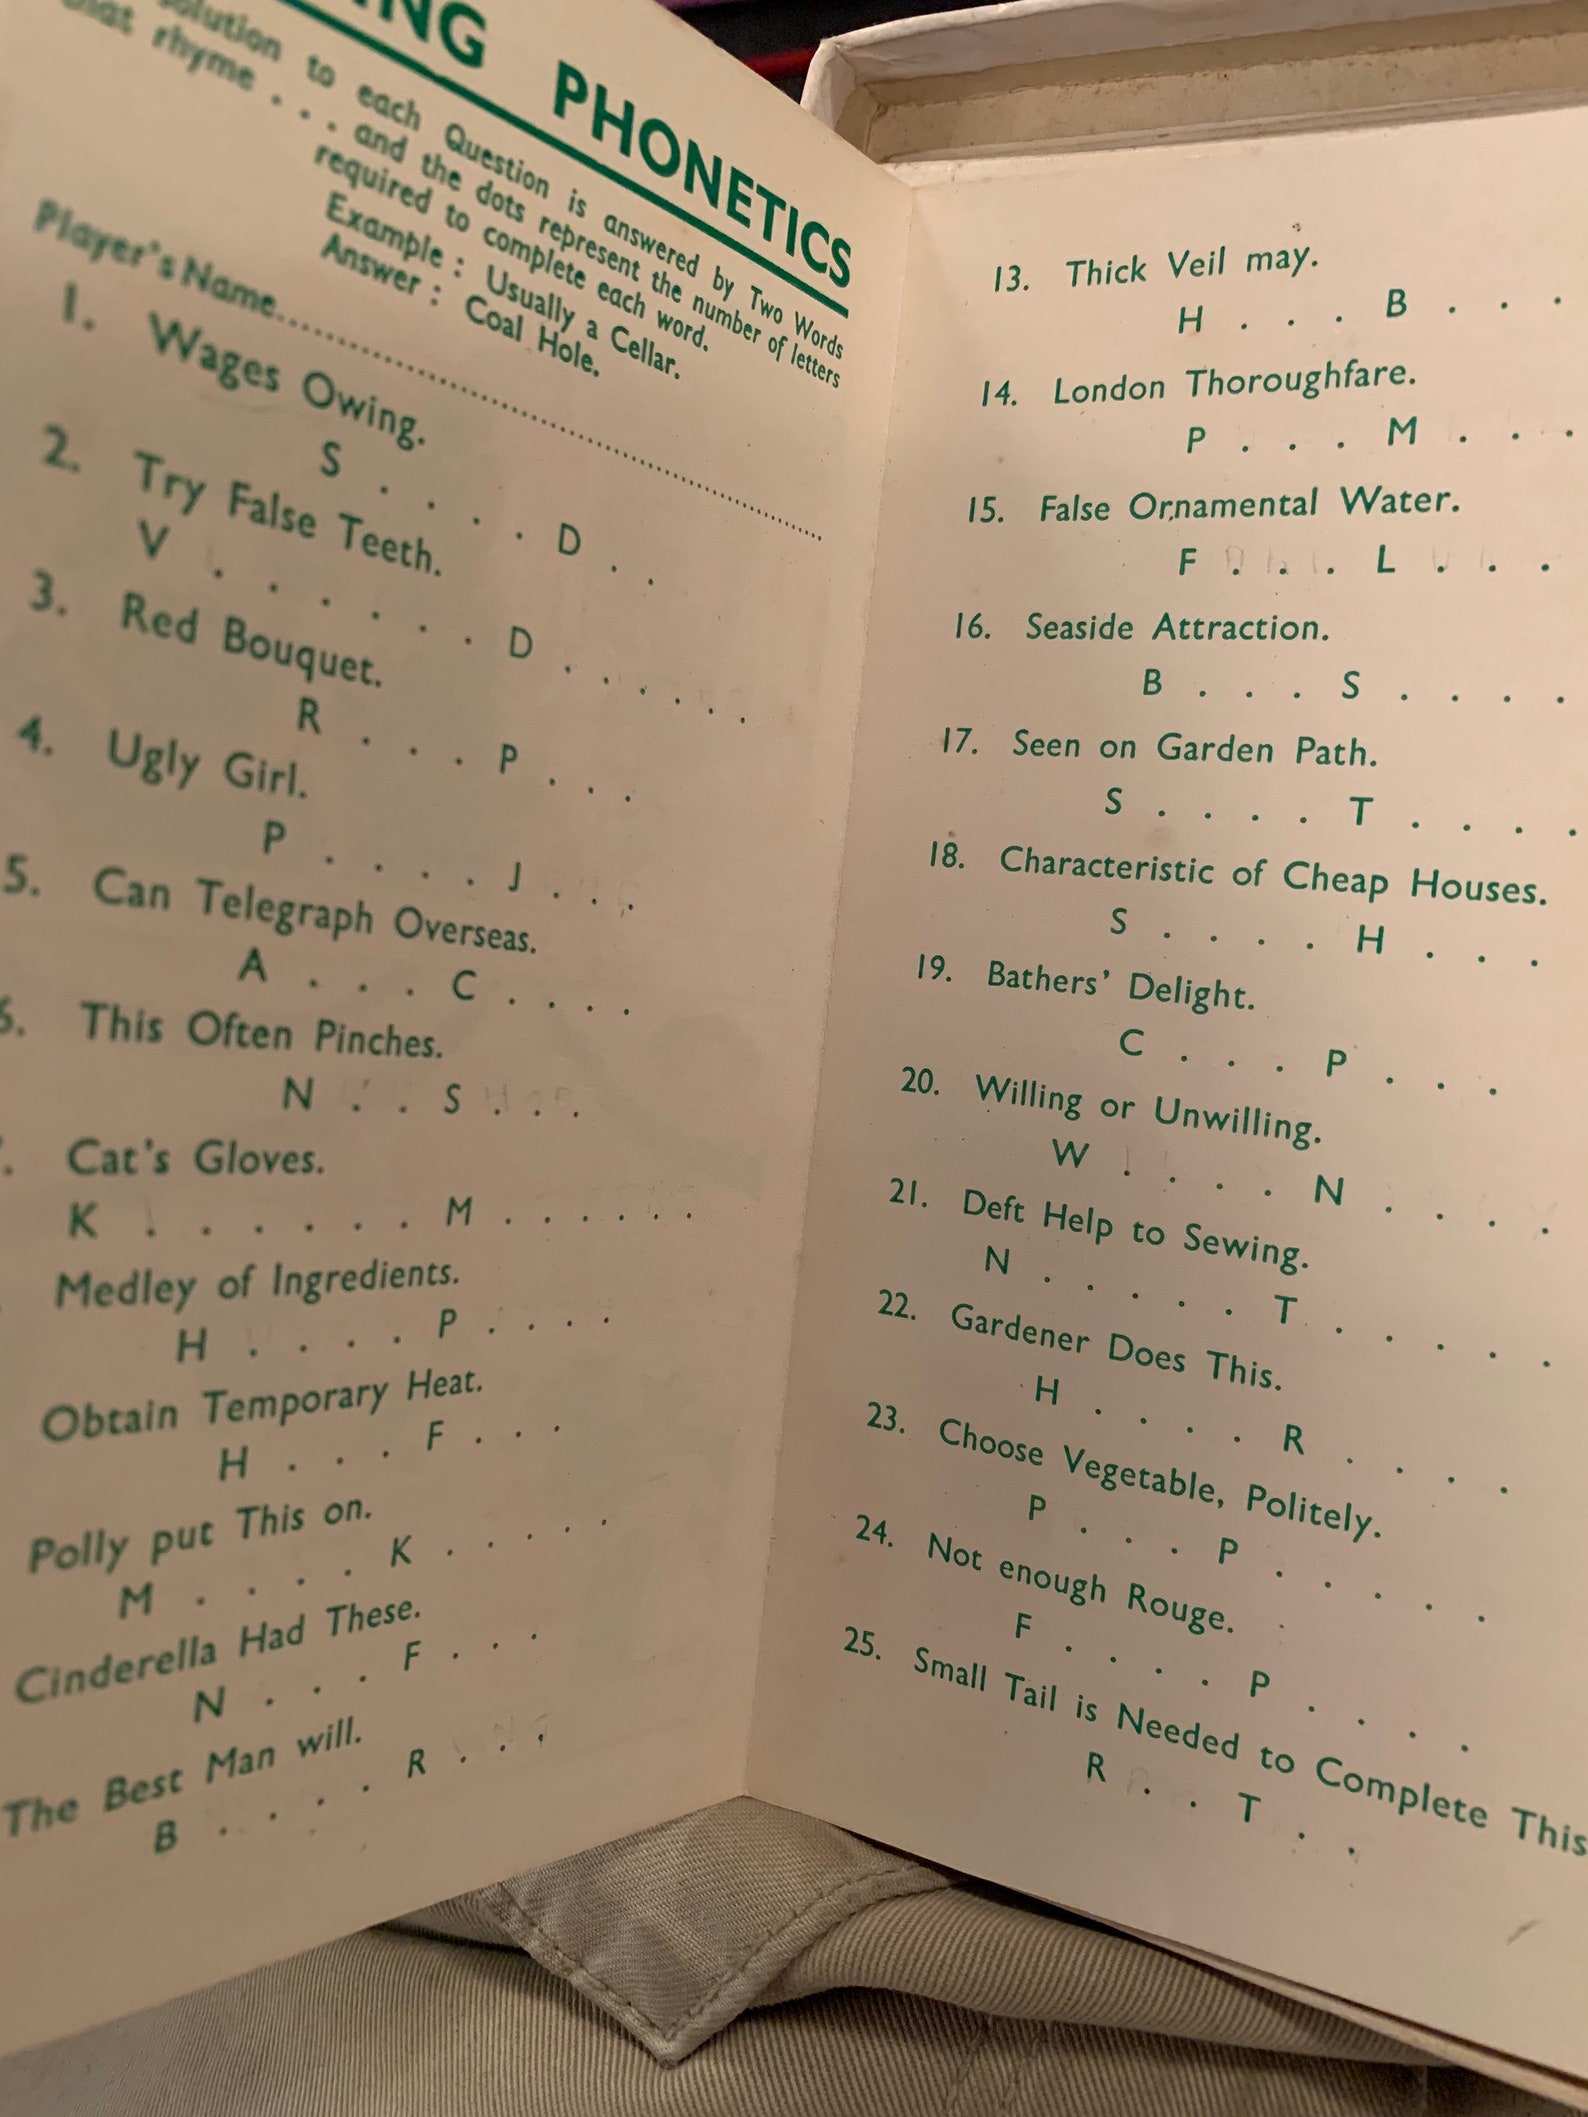 ING PHONETICS
solution to each Question is answered by Two Words
that rhyme . . . and the dots represent the number of letters
required to complete each word.
Example : Usually a Cellar.
Answer : Coal Hole.
Player's Name
1. Wages Owing.
S . . . . D . .
2. Try False Teeth.
V . . . . . . D . . . . . .
3. Red Bouquet.
R . . . P . . .
4. Ugly Girl.
P . . . . J . . .
5. Can Telegraph Overseas.
A . . . C . . . .
6. This Often Pinches.
N . . S . . .
. Cat's Gloves.
K . . . . . . M . . . . . .
Medley of Ingredients.
H . . . . P . . . .
Obtain Temporary Heat.
H . . . F . . .
Polly put This on.
M . . . . K . . . . .
Cinderella Had These.
N . . . F . . .
The Best Man will.
B . . . . R . . .
13. Thick Veil may.
H . . . B . . .
14. London Thoroughfare.
P . . . M . . .
15. False Ornamental Water.
F . . . L . . .
16. Seaside Attraction.
B . . . S . . . .
17. Seen on Garden Path.
S . . . . T . . . .
18. Characteristic of Cheap Houses.
S . . . . H . . .
19. Bathers' Delight.
C . . . P . . .
20. Willing or Unwilling.
W . . . . N . . . .
21. Deft Help to Sewing.
N . . . . . T . . . . .
22. Gardener Does This.
H . . . . R . . . .
23. Choose Vegetable, Politely.
P . . . P . . . . .
24. Not enough Rouge.
F . . . . P . . . .
25. Small Tail is Needed to Complete This
R . . T . .